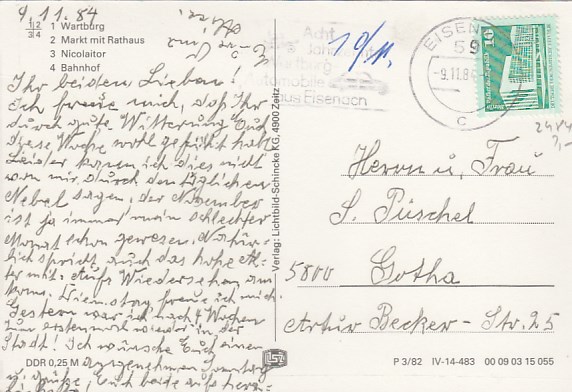 9.11.84
1 Wartburg
2 Markt mit Rathaus
3 Nicolaitor
4 Bahnhof
Ihr beiden Lieben!
Ich freue mich, daß Ihr
durch gute Witterung Euch
diese Woche wohl gefühlt habt
Leider kann ich dies nicht
von mir. Durch den täglichen
Nebel sagen, der November
ist ja immer mein schlechter
Monat schon gewesen. Natür-
lich spricht auch das hohe Al-
ter mit. Aufs Wiedersehen am
komm. Dienstag freue ich mich.
Gestern war ich nach 4 Wochen
zum erstenmal wieder in der
Stadt! Ich wünsche Euch einen
angenehmen Sonntag
Euch beide aufs herz-
DDR 0,25 M
Verlag: Lichtbild-Schincke KG, 4900 Zeitz
Acht
Jahrzehnte
Wartburg
Automobile
aus Eisenach
10/11.
EISEN
59
-9.11.84
c
10
Herrn u. Frau
S. Püschel
5800 Gotha
Artur Becker-Str. 25
P 3/82 IV-14-483 00 09 03 15 055